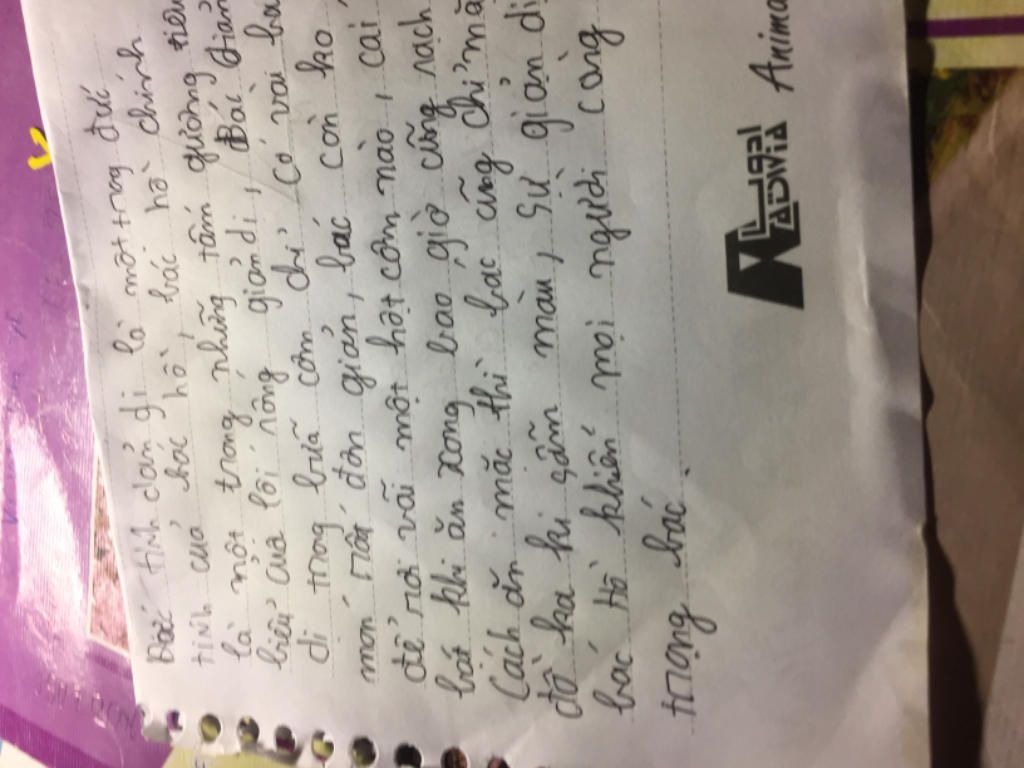 Đức tính dản dị là một trong đức
tính của bác hồ, bác hồ chính
là một trong những tấm gương tiêu
biểu của lối sống giản dị, Bác giản
dị trong bữa cơm chỉ có vài ba
món rất đơn giản, bác còn ko
để rơi vãi một hột cơm nào, cái
bát khi ăn xong bao giờ cũng sạch
Cách ăn mặc thì bác cũng chỉ mặ
đồ ka ki gẫm màu, sự giản dị
bác Hồ khiến mọi người càng
trọng bác.
MADWIA Anima